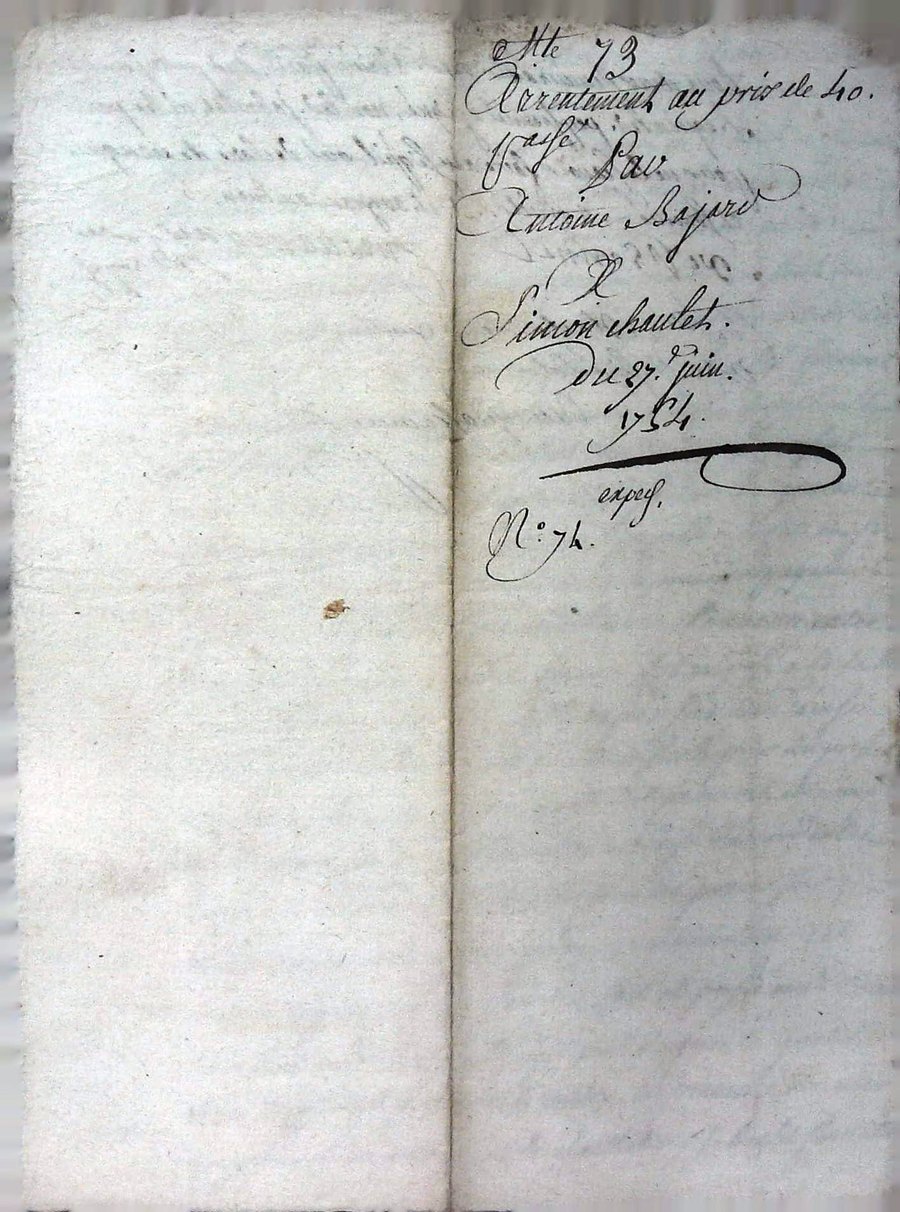 Cotte 73
Arrentement au prix de 40.
passé Par
Antoine Bajard
A
Simon chaulet.
du 27.e juin.
1754.
exped.
N.o 74.